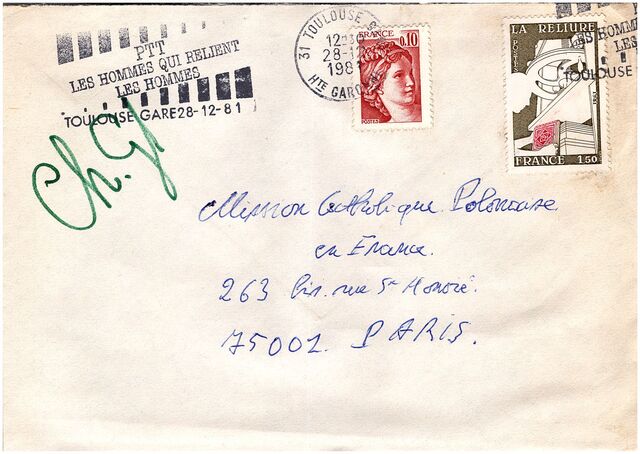 PTT
LES HOMMES QUI RELIENT
LES HOMMES
TOULOUSE GARE 28-12-81
31 TOULOUSE
28-12
1981
HTE GARONNE
FRANCE
0,10
POSTES
LA RELIURE
POSTES
FRANCE 1,50
LES
LES
TOULOUSE
Ch. G
Mission Catholique Polonaise
en France.
263 bis. rue St Honoré.
75001. PARIS.